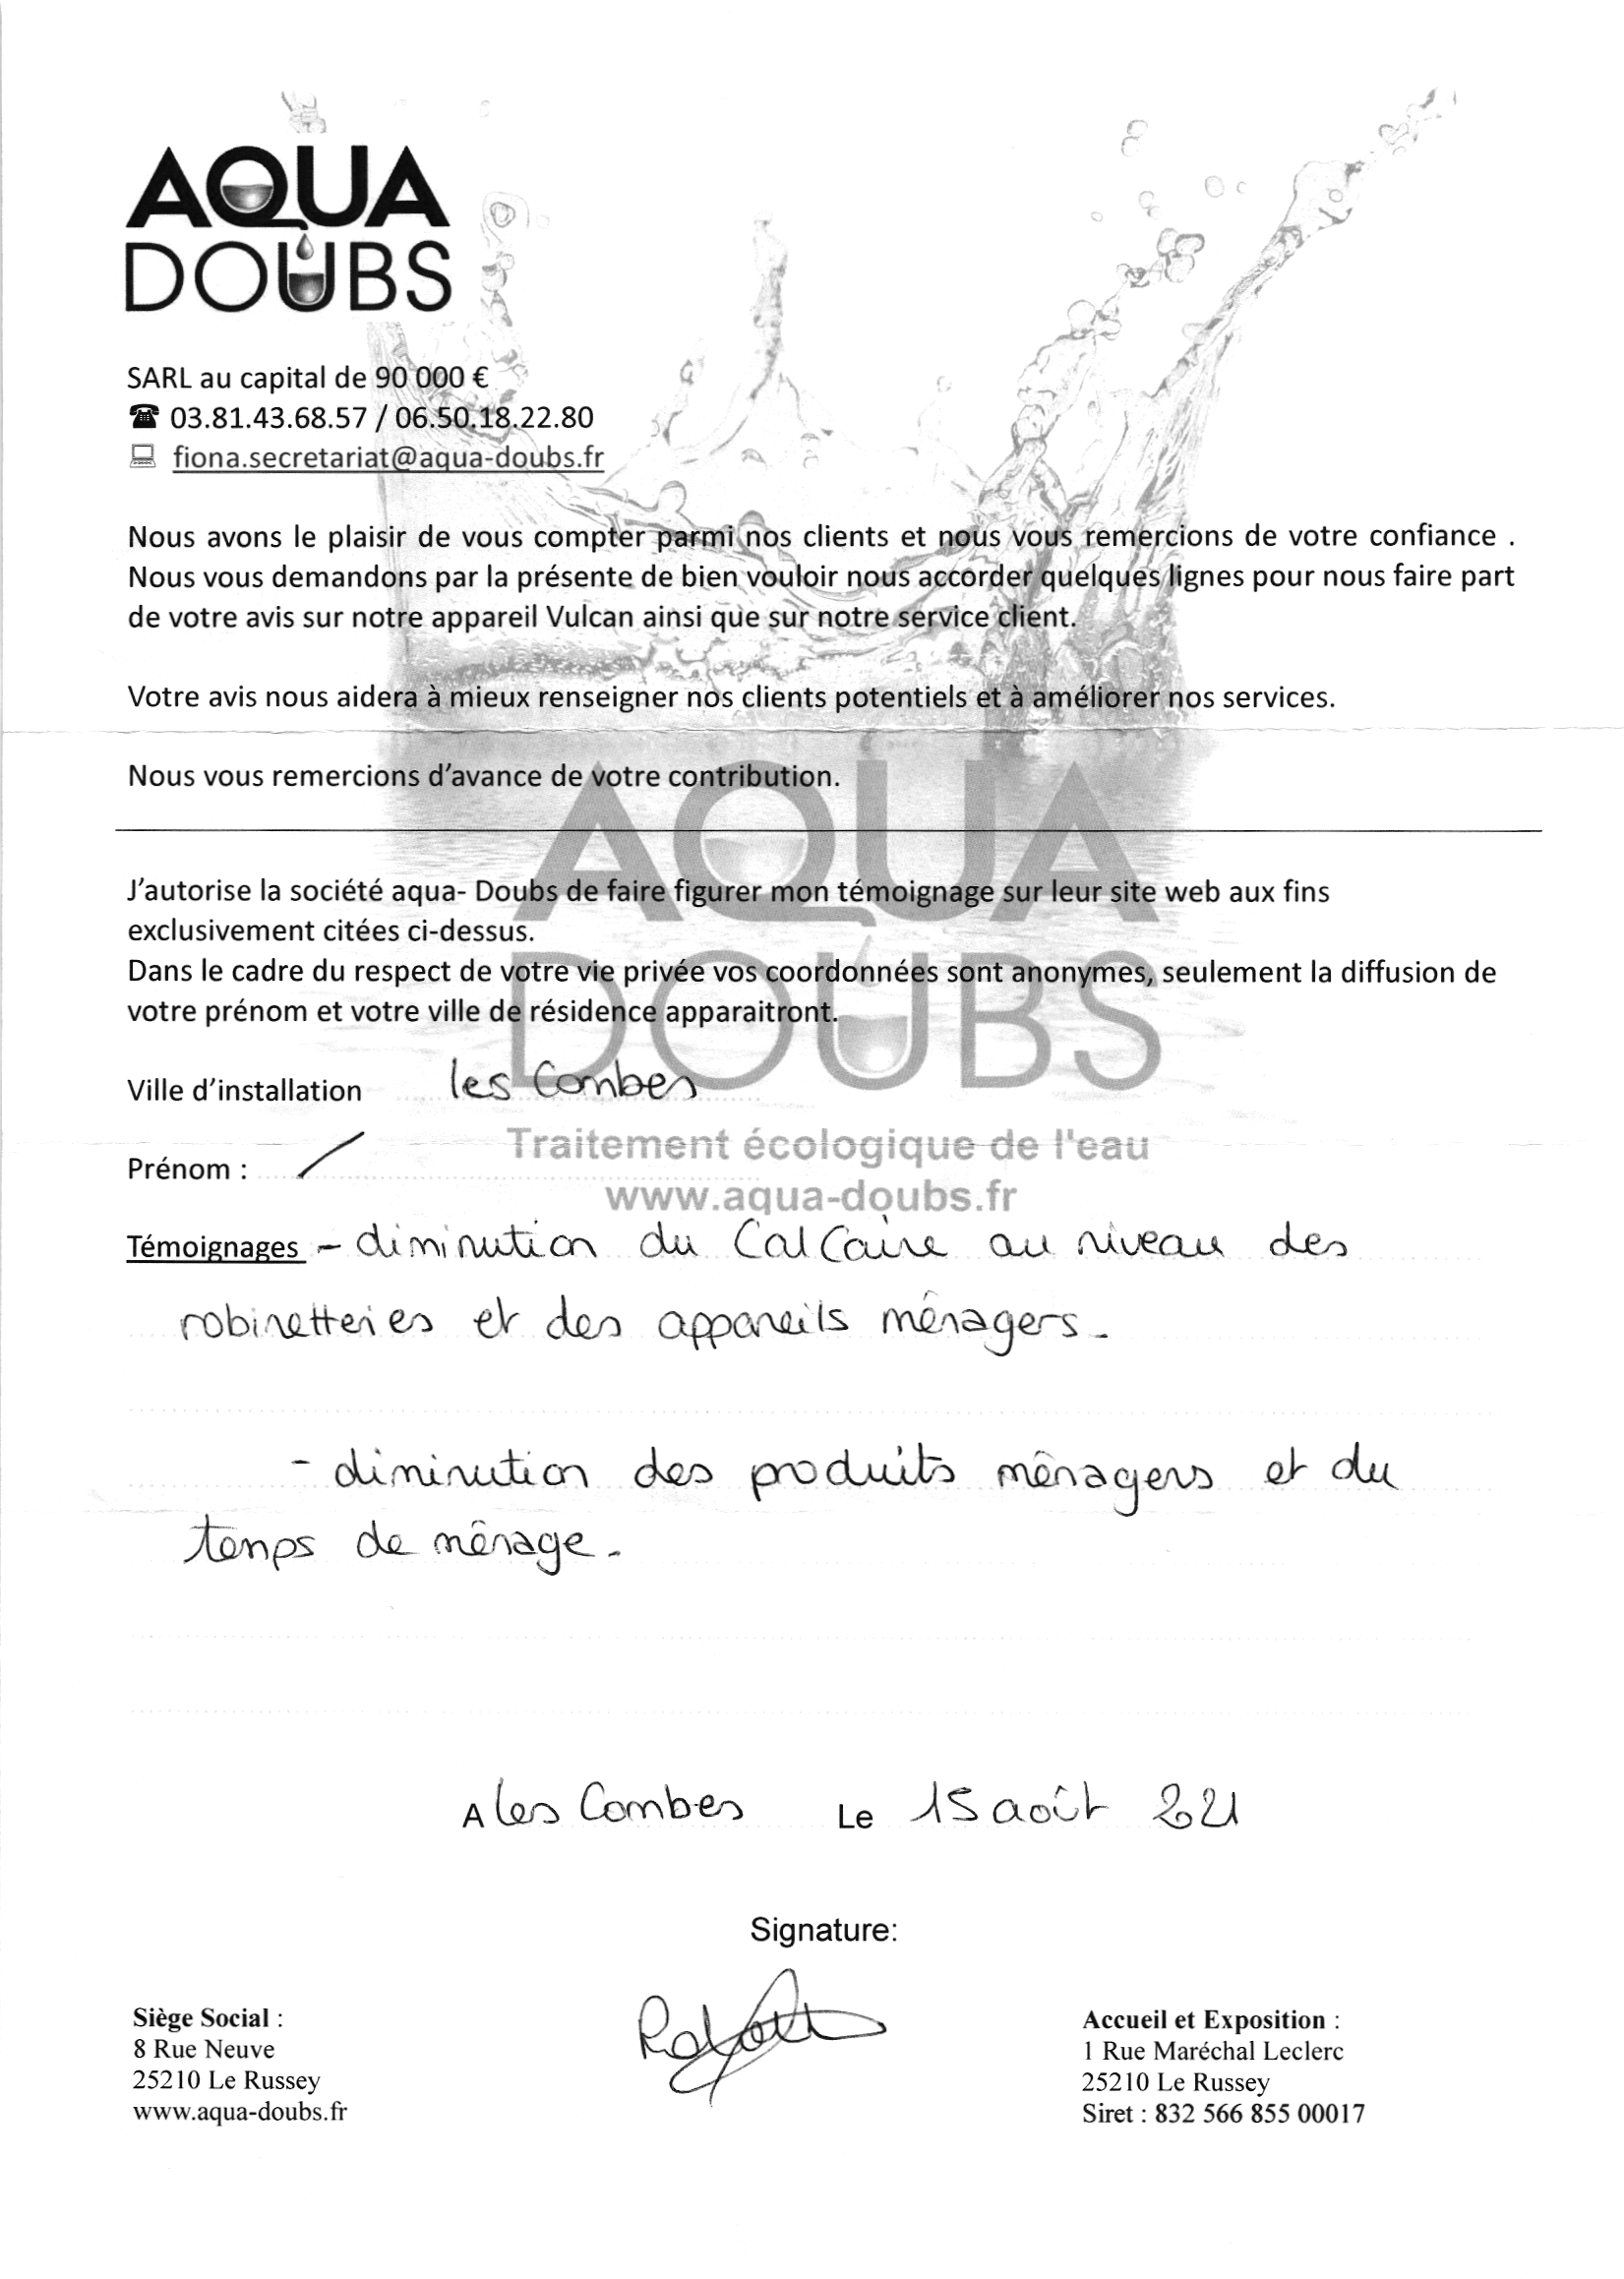 AQUA
DOUBS
SARL au capital de 90 000 €
03.81.43.68.57 / 06.50.18.22.80
fiona.secretariat@aqua-doubs.fr
Nous avons le plaisir de vous compter parmi nos clients et nous vous remercions de votre confiance .
Nous vous demandons par la présente de bien vouloir nous accorder quelques lignes pour nous faire part
de votre avis sur notre appareil Vulcan ainsi que sur notre service client.
Votre avis nous aidera à mieux renseigner nos clients potentiels et à améliorer nos services.
Nous vous remercions d’avance de votre contribution.
AQUA
DOUBS
J’autorise la société aqua- Doubs de faire figurer mon témoignage sur leur site web aux fins
exclusivement citées ci-dessus.
Dans le cadre du respect de votre vie privée vos coordonnées sont anonymes, seulement la diffusion de
votre prénom et votre ville de résidence apparaitront.
Ville d’installation les Combes
Traitement écologique de l'eau
Prénom : /
www.aqua-doubs.fr
Témoignages - diminution du CalCaire au niveau des
robinetteries et des appareils ménagers.
- diminution des produits ménagers et du
temps de ménage.
A les Combes Le 15 août 2021
Signature:
Siège Social :
8 Rue Neuve
25210 Le Russey
www.aqua-doubs.fr
Accueil et Exposition :
1 Rue Maréchal Leclerc
25210 Le Russey
Siret : 832 566 855 00017